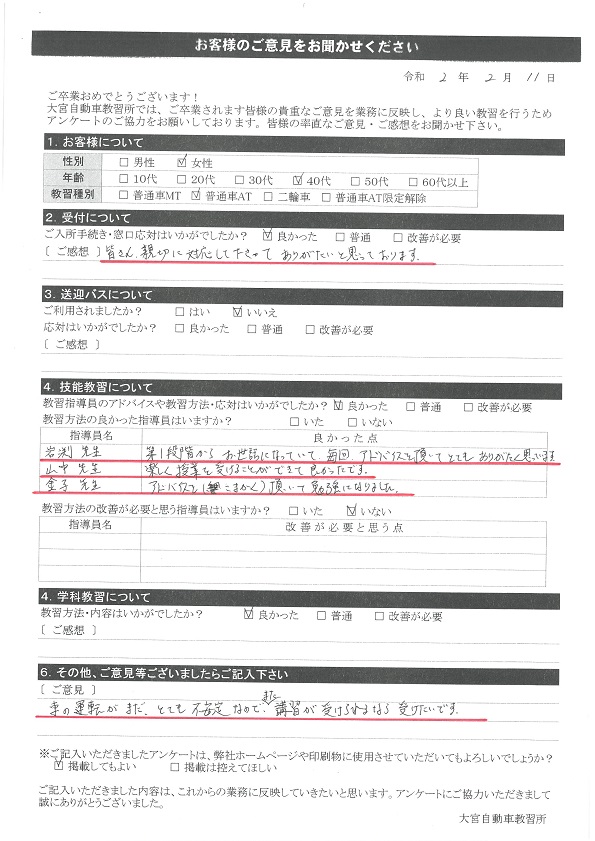 お客様のご意見をお聞かせください
令和 2 年 2 月 11 日
ご卒業おめでとうございます!
大宮自動車教習所では、ご卒業されます皆様の貴重なご意見を業務に反映し、より良い教習を行うため
アンケートのご協力をお願いしております。皆様の率直なご意見・ご感想をお聞かせ下さい。
1. お客様について
性別 □ 男性 ☑ 女性
年齢 □ 10代 □ 20代 □ 30代 ☑ 40代 □ 50代 □ 60代以上
教習種別 □ 普通車MT ☑ 普通車AT □ 二輪車 □ 普通車AT限定解除
2. 受付について
ご入所手続き・窓口応対はいかがでしたか? ☑ 良かった □ 普通 □ 改善が必要
[ ご感想 ] 皆さん、親切に対応して下さって ありがたいと思っております。
3. 送迎バスについて
ご利用されましたか? □ はい ☑ いいえ
応対はいかがでしたか? □ 良かった □ 普通 □ 改善が必要
[ ご感想 ]
4. 技能教習について
教習指導員のアドバイスや教習方法・応対はいかがでしたか? ☑ 良かった □ 普通 □ 改善が必要
教習方法の良かった指導員はいますか? □ いた □ いない
指導員名 良かった点
岩渕 先生 第1段階から お世話になっていて、毎回、アドバイスを頂いてとてもありがたく思います
山中 先生 楽しく授業を受けることができて良かったです。
金子 先生 アドバイスを(こまかく)頂いて勉強になりました。
教習方法の改善が必要と思う指導員はいますか? □ いた ☑ いない
指導員名 改善が必要と思う点
4. 学科教習について
教習方法・内容はいかがでしたか? ☑ 良かった □ 普通 □ 改善が必要
[ ご感想 ]
6. その他、ご意見等ございましたらご記入下さい
[ ご意見 ]
車の運転が まだ、とても 不安定なので、また 講習が 受けられるなら 受けたいです。
※ご記入いただきましたアンケートは、弊社ホームページや印刷物に使用させていただいてもよろしいでしょうか?
☑ 掲載してもよい □ 掲載は控えてほしい
ご記入いただきました内容は、これからの業務に反映していきたいと思います。アンケートにご協力いただきまして
誠にありがとうございました。
大宮自動車教習所